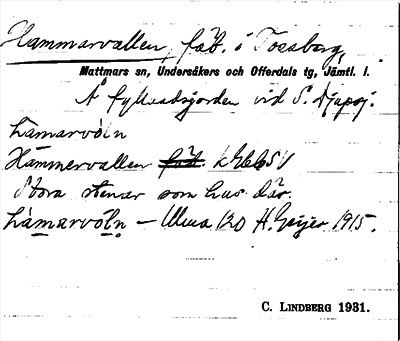 Hammarvallen, fäb. i Tossberg,
Mattmars sn, Undersåkers och Offerdals tg, Jämtl. l.
Å fyllvadsjorden vid S. Djupsj.
hamarvòln
Hammervallen fäb. k
Stora stenar som hus där.
hamarvòln – Ulma 120 H. Geijer 1915.
C. LINDBERG 1931.